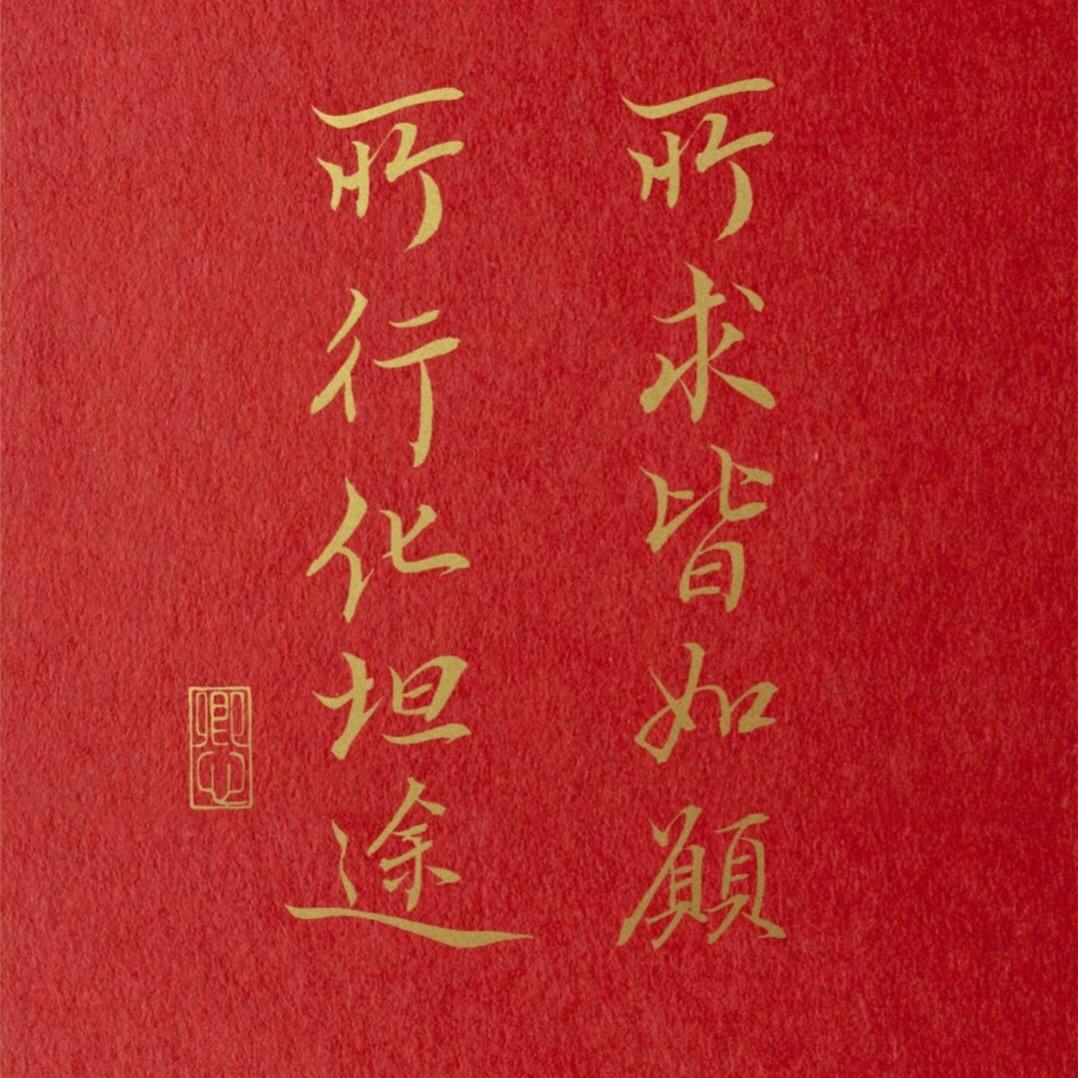 所求皆如願
所行化坦途
卿心